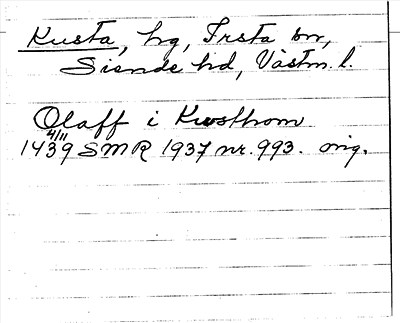 Kusta, hg, Irsta sn,
Siende hd, Västm. l.
Olaff i Kwsthom
4/11
1439 SMR 1937 nr. 993. orig.